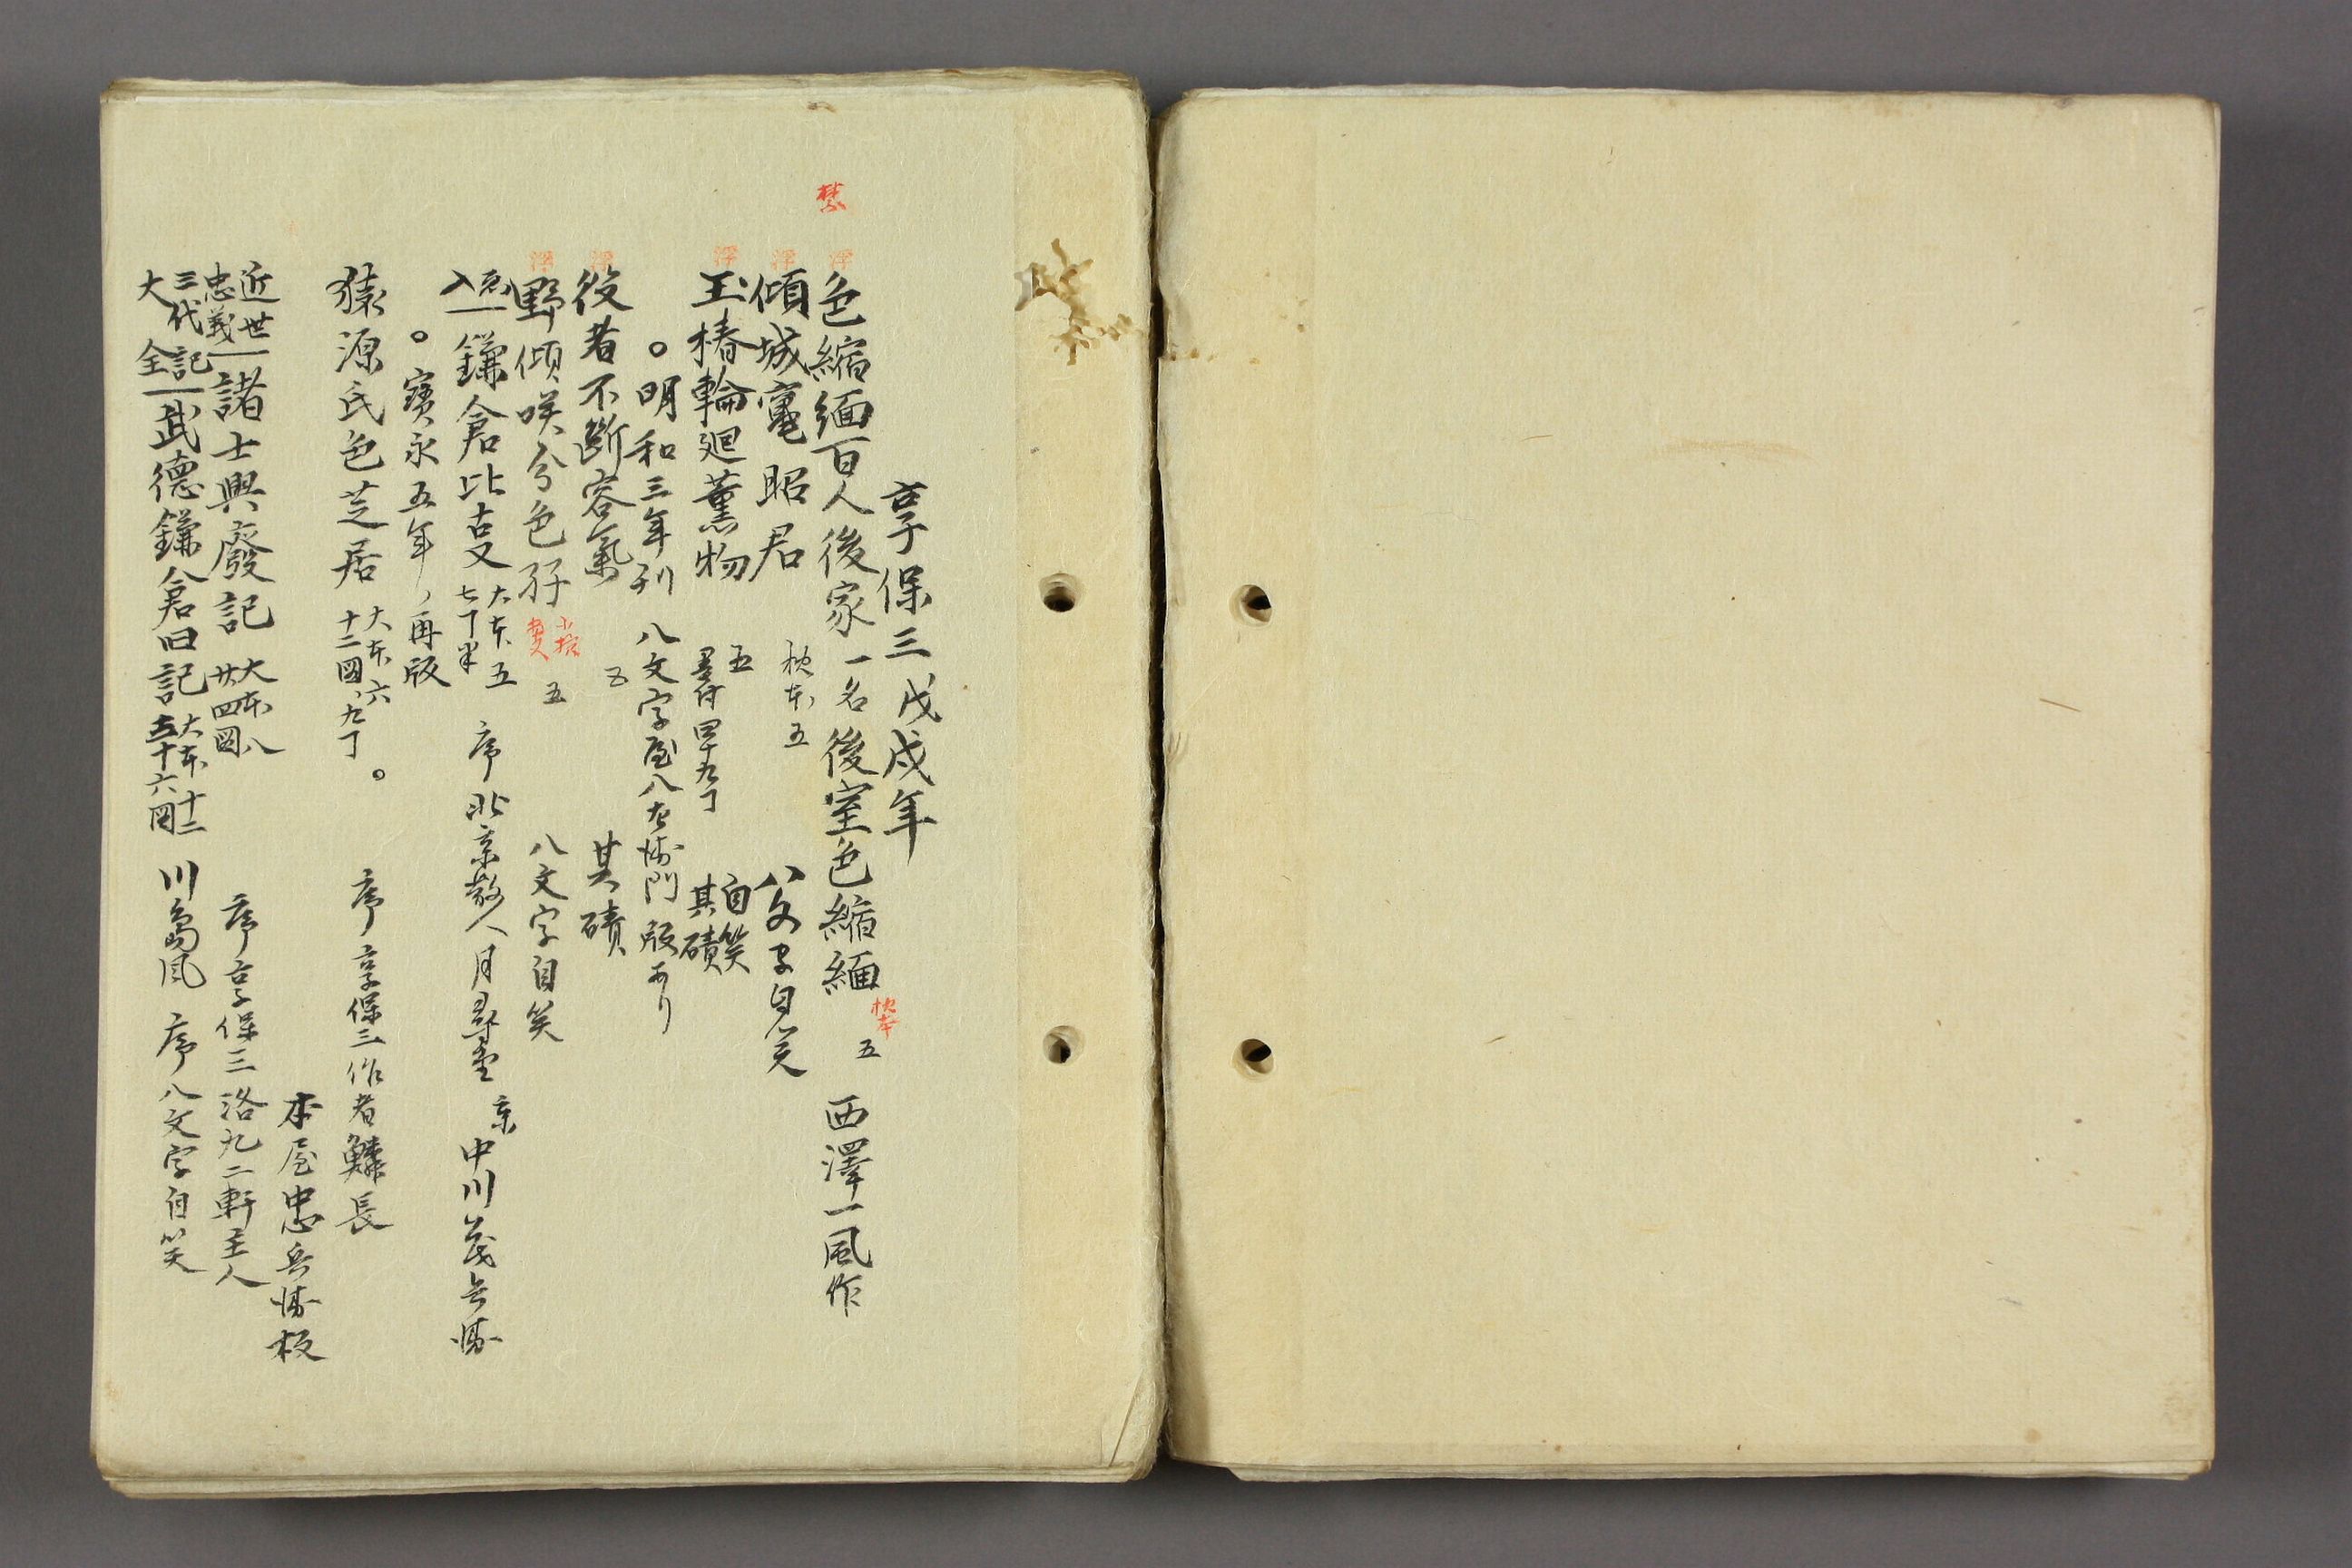 享保三戊戌年
禁
浮 色縮緬百人後家 一名 後室色縮緬 枕本 五 西澤一風作
浮 傾城竈昭君 枕本 五 八文字自笑
浮 玉椿輪廻薫物 五 墨付四十九丁 自笑 其磧
○明和三年刊 八文字屋八左衛門版あり
浮 役者不断容氣 五 其磧
浮 野傾咲分色孖 小振 五 八文字自笑
鎌倉比古叉 大本五 七丁半 序 北京散人月尋堂 京 中川茂兵衛
○寳永五年、再版
猿源氏色芝居 大本六 十二圖、九丁。 序 享保三作者鱗長
本屋忠兵衛板
近世忠義 諸士興廢記 大本八 廿四図 序 享保三洛九二軒主人
三代記大全 武德鎌倉旧記 大本十二 五十六図 川島風 序 八文字自笑